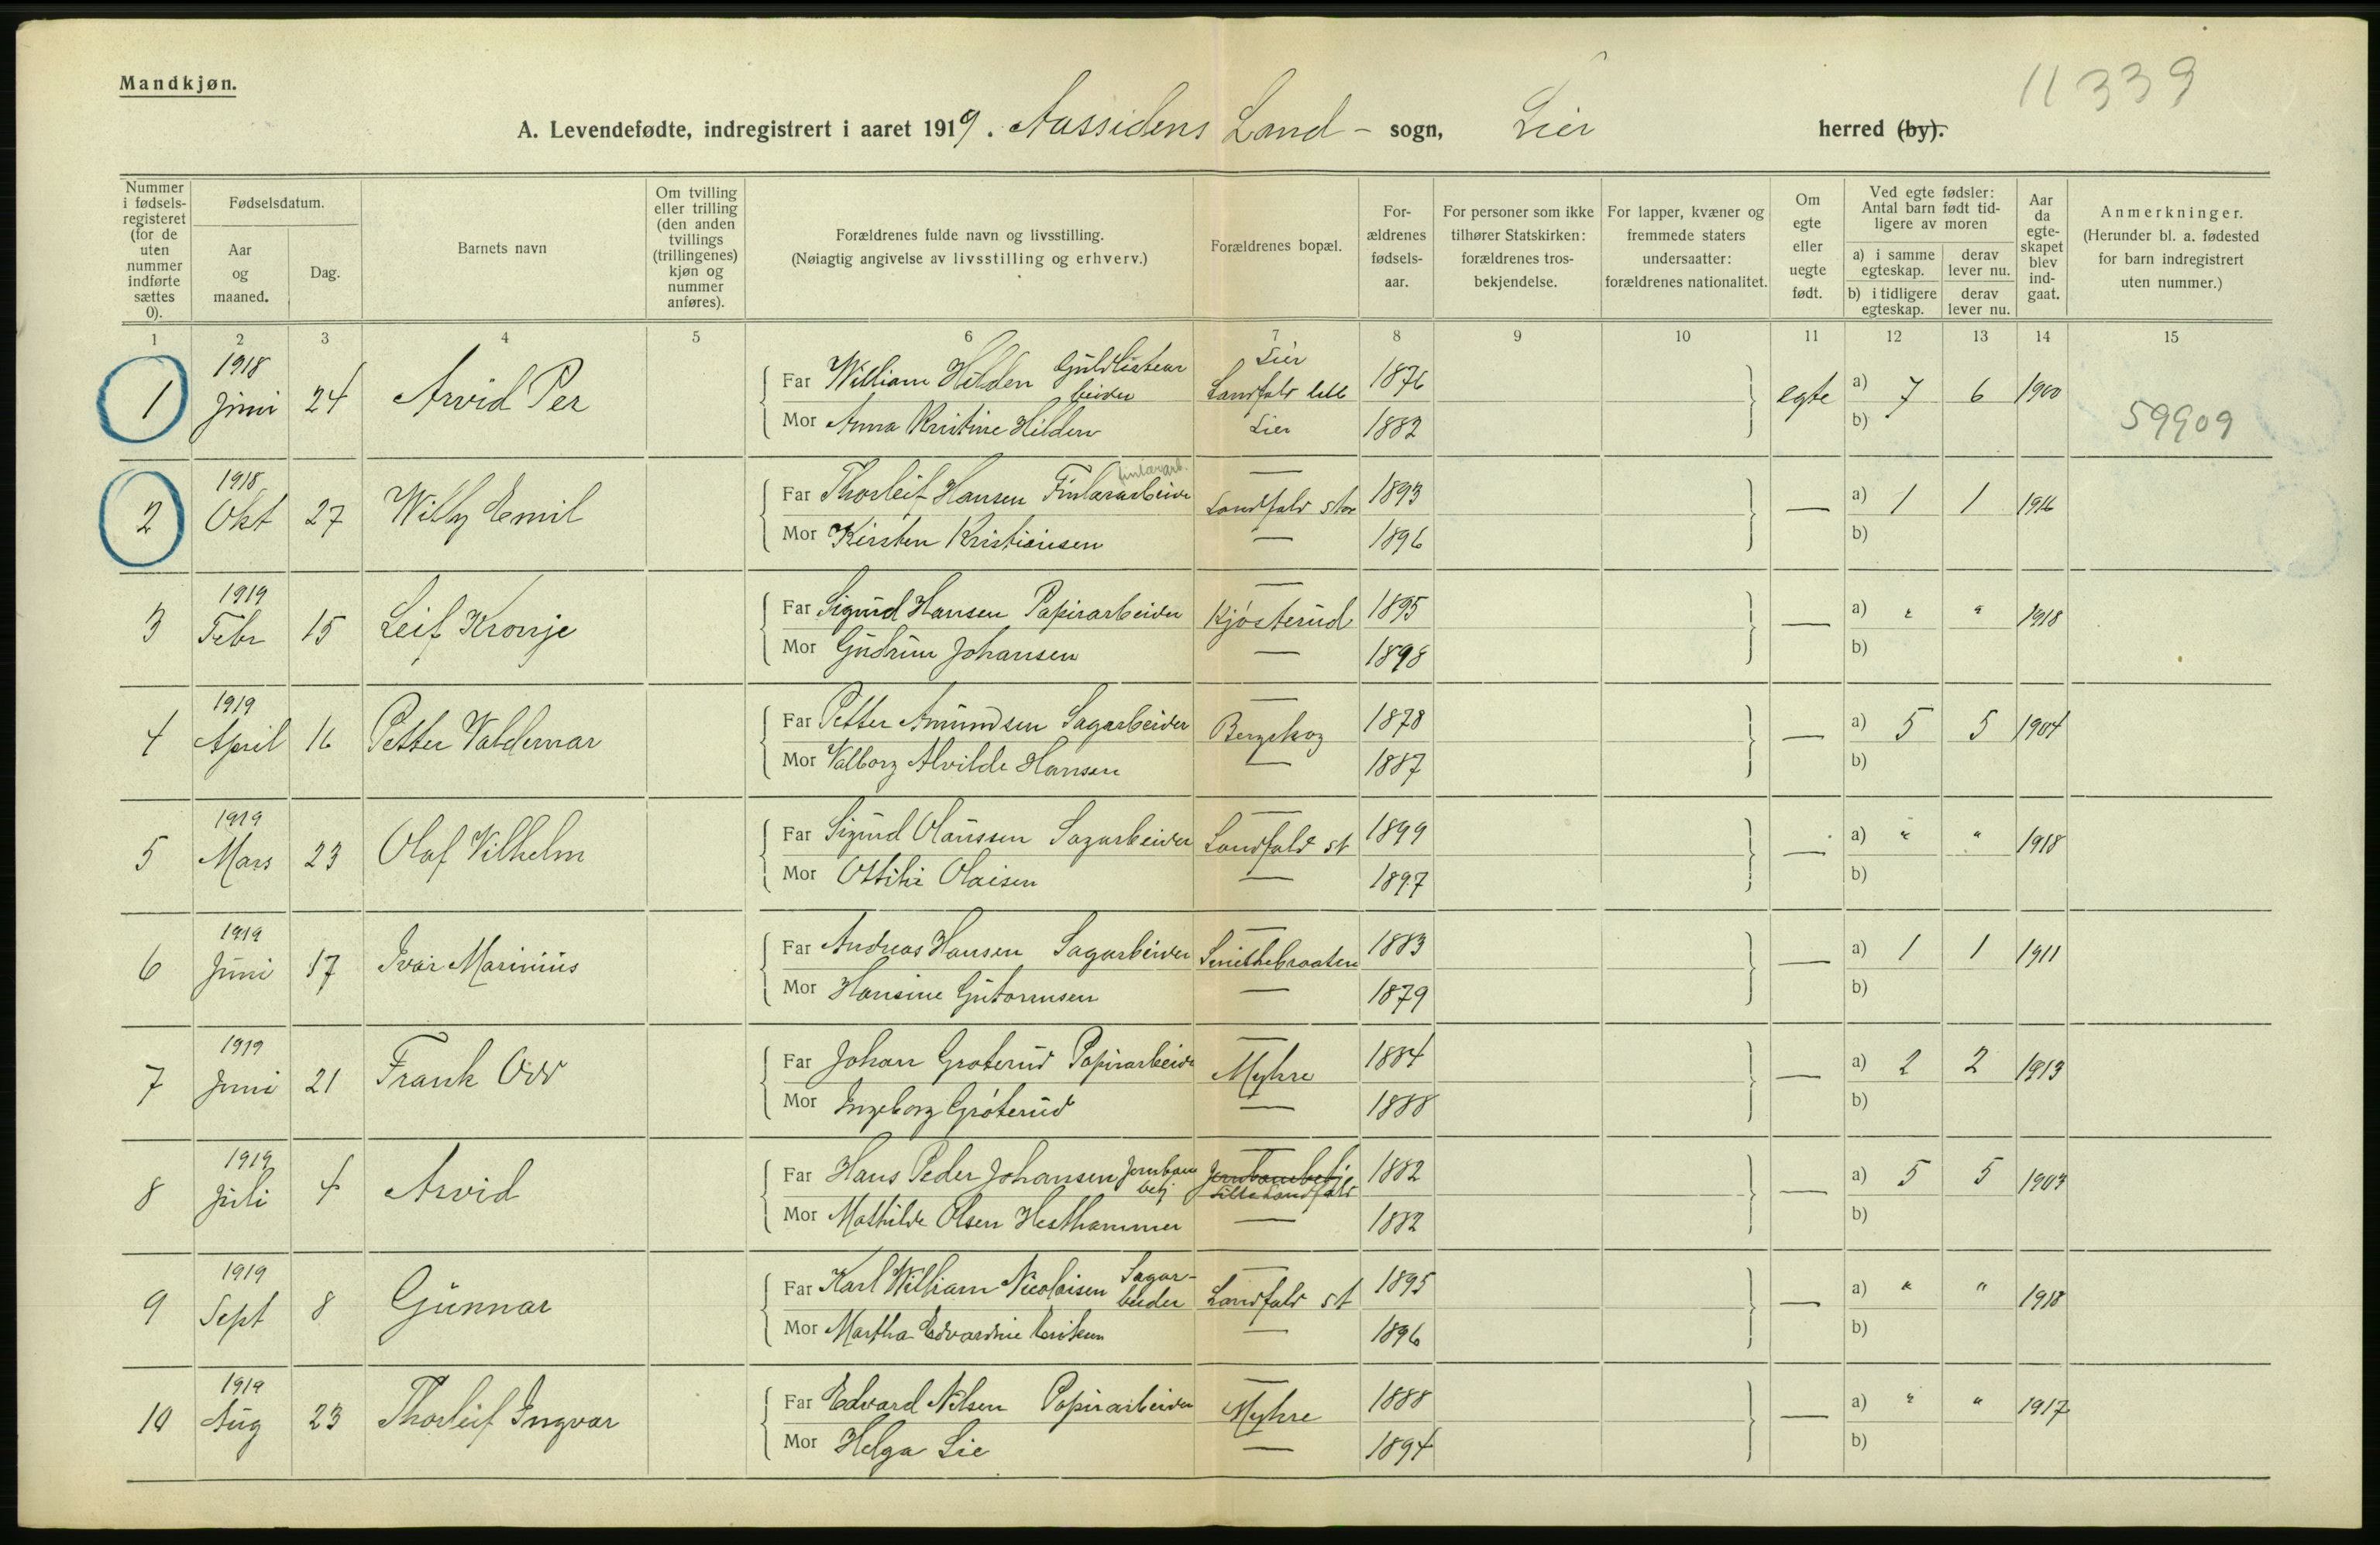 Mandkjøn.
11339
A. Levendefødte, indregistrert i aaret 1919. Aassidens Land - sogn, Lier herred (by).
Nummer i fødsels-registeret (for de uten nummer indførte sættes 0).
Fødselsdatum.
Aar og maaned.
Dag.
Barnets navn
Om tvilling eller trilling (den anden tvillings (trillingenes) kjøn og nummer anføres).
Forældrenes fulde navn og livsstilling.
(Nøiagtig angivelse av livsstilling og erhverv.)
Forældrenes bopæl.
For-ældrenes fødsels-aar.
For personer som ikke tilhører Statskirken: forældrenes tros-bekjendelse.
For lapper, kvæner og fremmede staters undersaatter: forældrenes nationalitet.
Om egte eller uegte født.
Ved egte fødsler: Antal barn født tid-ligere av moren
a) i samme egteskap.
derav lever nu.
b) i tidligere egteskap.
derav lever nu.
Aar da egte-skapet blev ind-gaat.
Anmerkninger.
(Herunder bl. a. fødested for barn indregistrert uten nummer.)
1 2 3 4 5 6 7 8 9 10 11 12 13 14 15
1 1918 Juni 24 Arvid Per
Far William Hilden Guldlistearbeider Lier Landfald lille 1876
Mor Anna Kristine Hilden Lier 1882
egte a) 7 6 1900
b)
59909
2 1918 Okt 27 Willy Emil
Far Thorleif Hansen — Landfald stor 1893
Mor Kirsten Kristiansen — 1896
— a) 1 1 1916
b)
3 1919 Febr 15 Leif Kronje
Far Sigurd Hansen Papirarbeider — Kjøsterud 1895
Mor Gudrun Johansen — 1898
— a) " " 1918
b)
4 1919 April 16 Petter Valdemar
Far Petter Amundsen Sagarbeider — Bergskog 1878
Mor Valborg Alvilde Hansen — 1887
— a) 5 5 1904
b)
5 1919 Mars 23 Olaf Vilhelm
Far Sigurd Olaussen Sagarbeider — Landfald st 1899
Mor Ottilie Olaisen — 1897
— a) " " 1918
b)
6 1919 Juni 17 Ivar Marinius
Far Andreas Hansen Sagarbeider — 1883
Mor Hansine Gutormsen — 1879
— a) 1 1 1911
b)
7 1919 Juni 21 Frank Odd
Far Johan Groterud Papirarbeide — Myhre 1884
Mor Ingeborg Grøterud — 1888
— a) 2 2 1913
b)
8 1919 Juli 4 Arvid
Far Hans Peder Johansen Jernbane betj — Jernbanebetj Lille Landfald 1882
Mor Mathilde Olsen Hesthammer — 1882
— a) 5 5
b)
9 1919 Sept 8 Gunnar
Far Karl William Nicolaisen Sagar-beider — Landfald st 1895
Mor Martha — 1896
— a) " " 1918
b)
10 1919 Aug 23 Thorleif Ingvar
Far Edvard Nilsen Papirarbeider — Myhre 1888
Mor Helga Lie — 1894
— a) " " 1917
b)